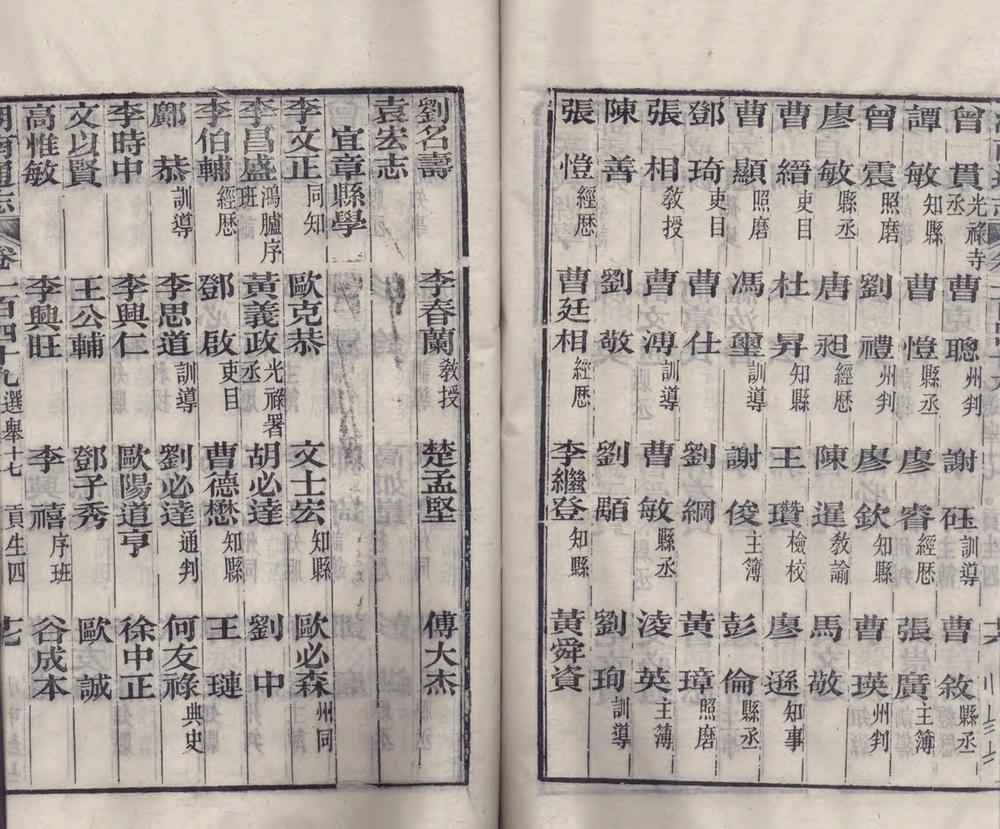 曾貫光祿寺丞　曹聰州判　謝砡訓導　曹敘縣丞
譚敏知縣　曹愷縣丞　廖睿經歷　張廣主簿
曾震照磨　劉禮州判　廖欽知縣　曹瑛州判
廖敏縣丞　唐昶經歷　陳暹教諭　馬敬
曹縉吏目　杜昇知縣　王瓚檢校　廖遜知事
曹顯照磨　馮璽訓導　謝俊主簿　彭倫縣丞
鄧琦吏目　曹仕　劉綱　黃璋照磨
張相教授　曹溥訓導　曹敏縣丞　淩英主簿
陳善　劉敬　劉顒　劉珣訓導
張愷經歷　曹廷相經歷　李繼登知縣　黃舜資
劉名壽　李春蘭教授　楚孟堅　傅大杰
袁宏志
宜章縣學
李文正同知　歐克恭　文士宏知縣　歐必森州同
李昌盛鴻臚序班　黃義政光祿署丞　胡必達　劉中
李伯輔經歷　鄧啟吏目　曹德懋知縣　王璉
鄺恭訓導　李思道訓導　劉必達通判　何友祿典史
李時中　李興仁　歐陽道亨　徐中正
文以賢　王公輔　鄧子秀　歐誠
高惟敏　李興旺　李禧序班　谷成本
湖南通志　卷一百四十九　選舉十七　貢生四　十七